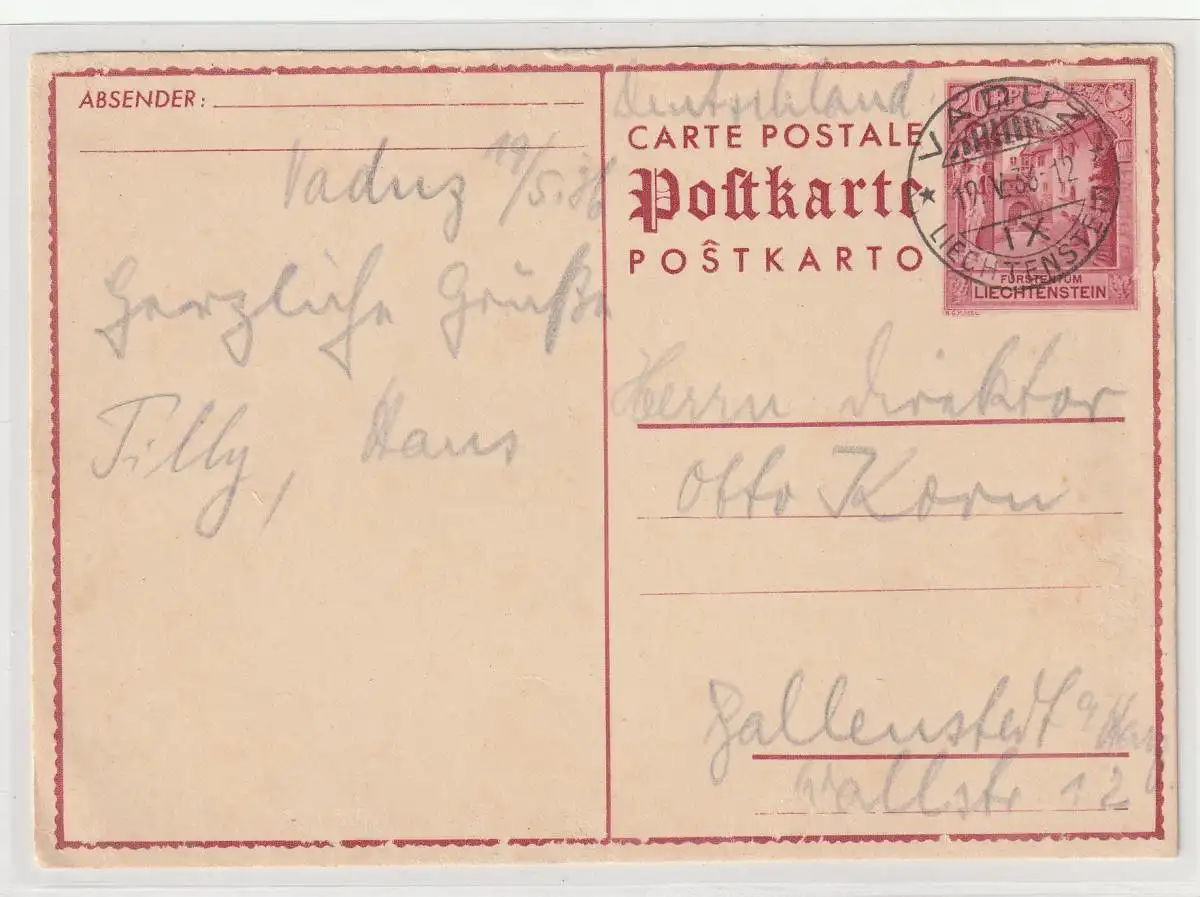 ABSENDER:
Vaduz 19/5.36
Herzliche Grüße
Tilly, Hans
Deutschland
CARTE POSTALE
Poſtkarte
POŜTKARTO
VADUZ
LIECHTENSTEIN
FÜRSTENTUM
LIECHTENSTEIN
Herrn Direktor
Otto Korn
Ballenstedt a/Harz
Wallstr 12